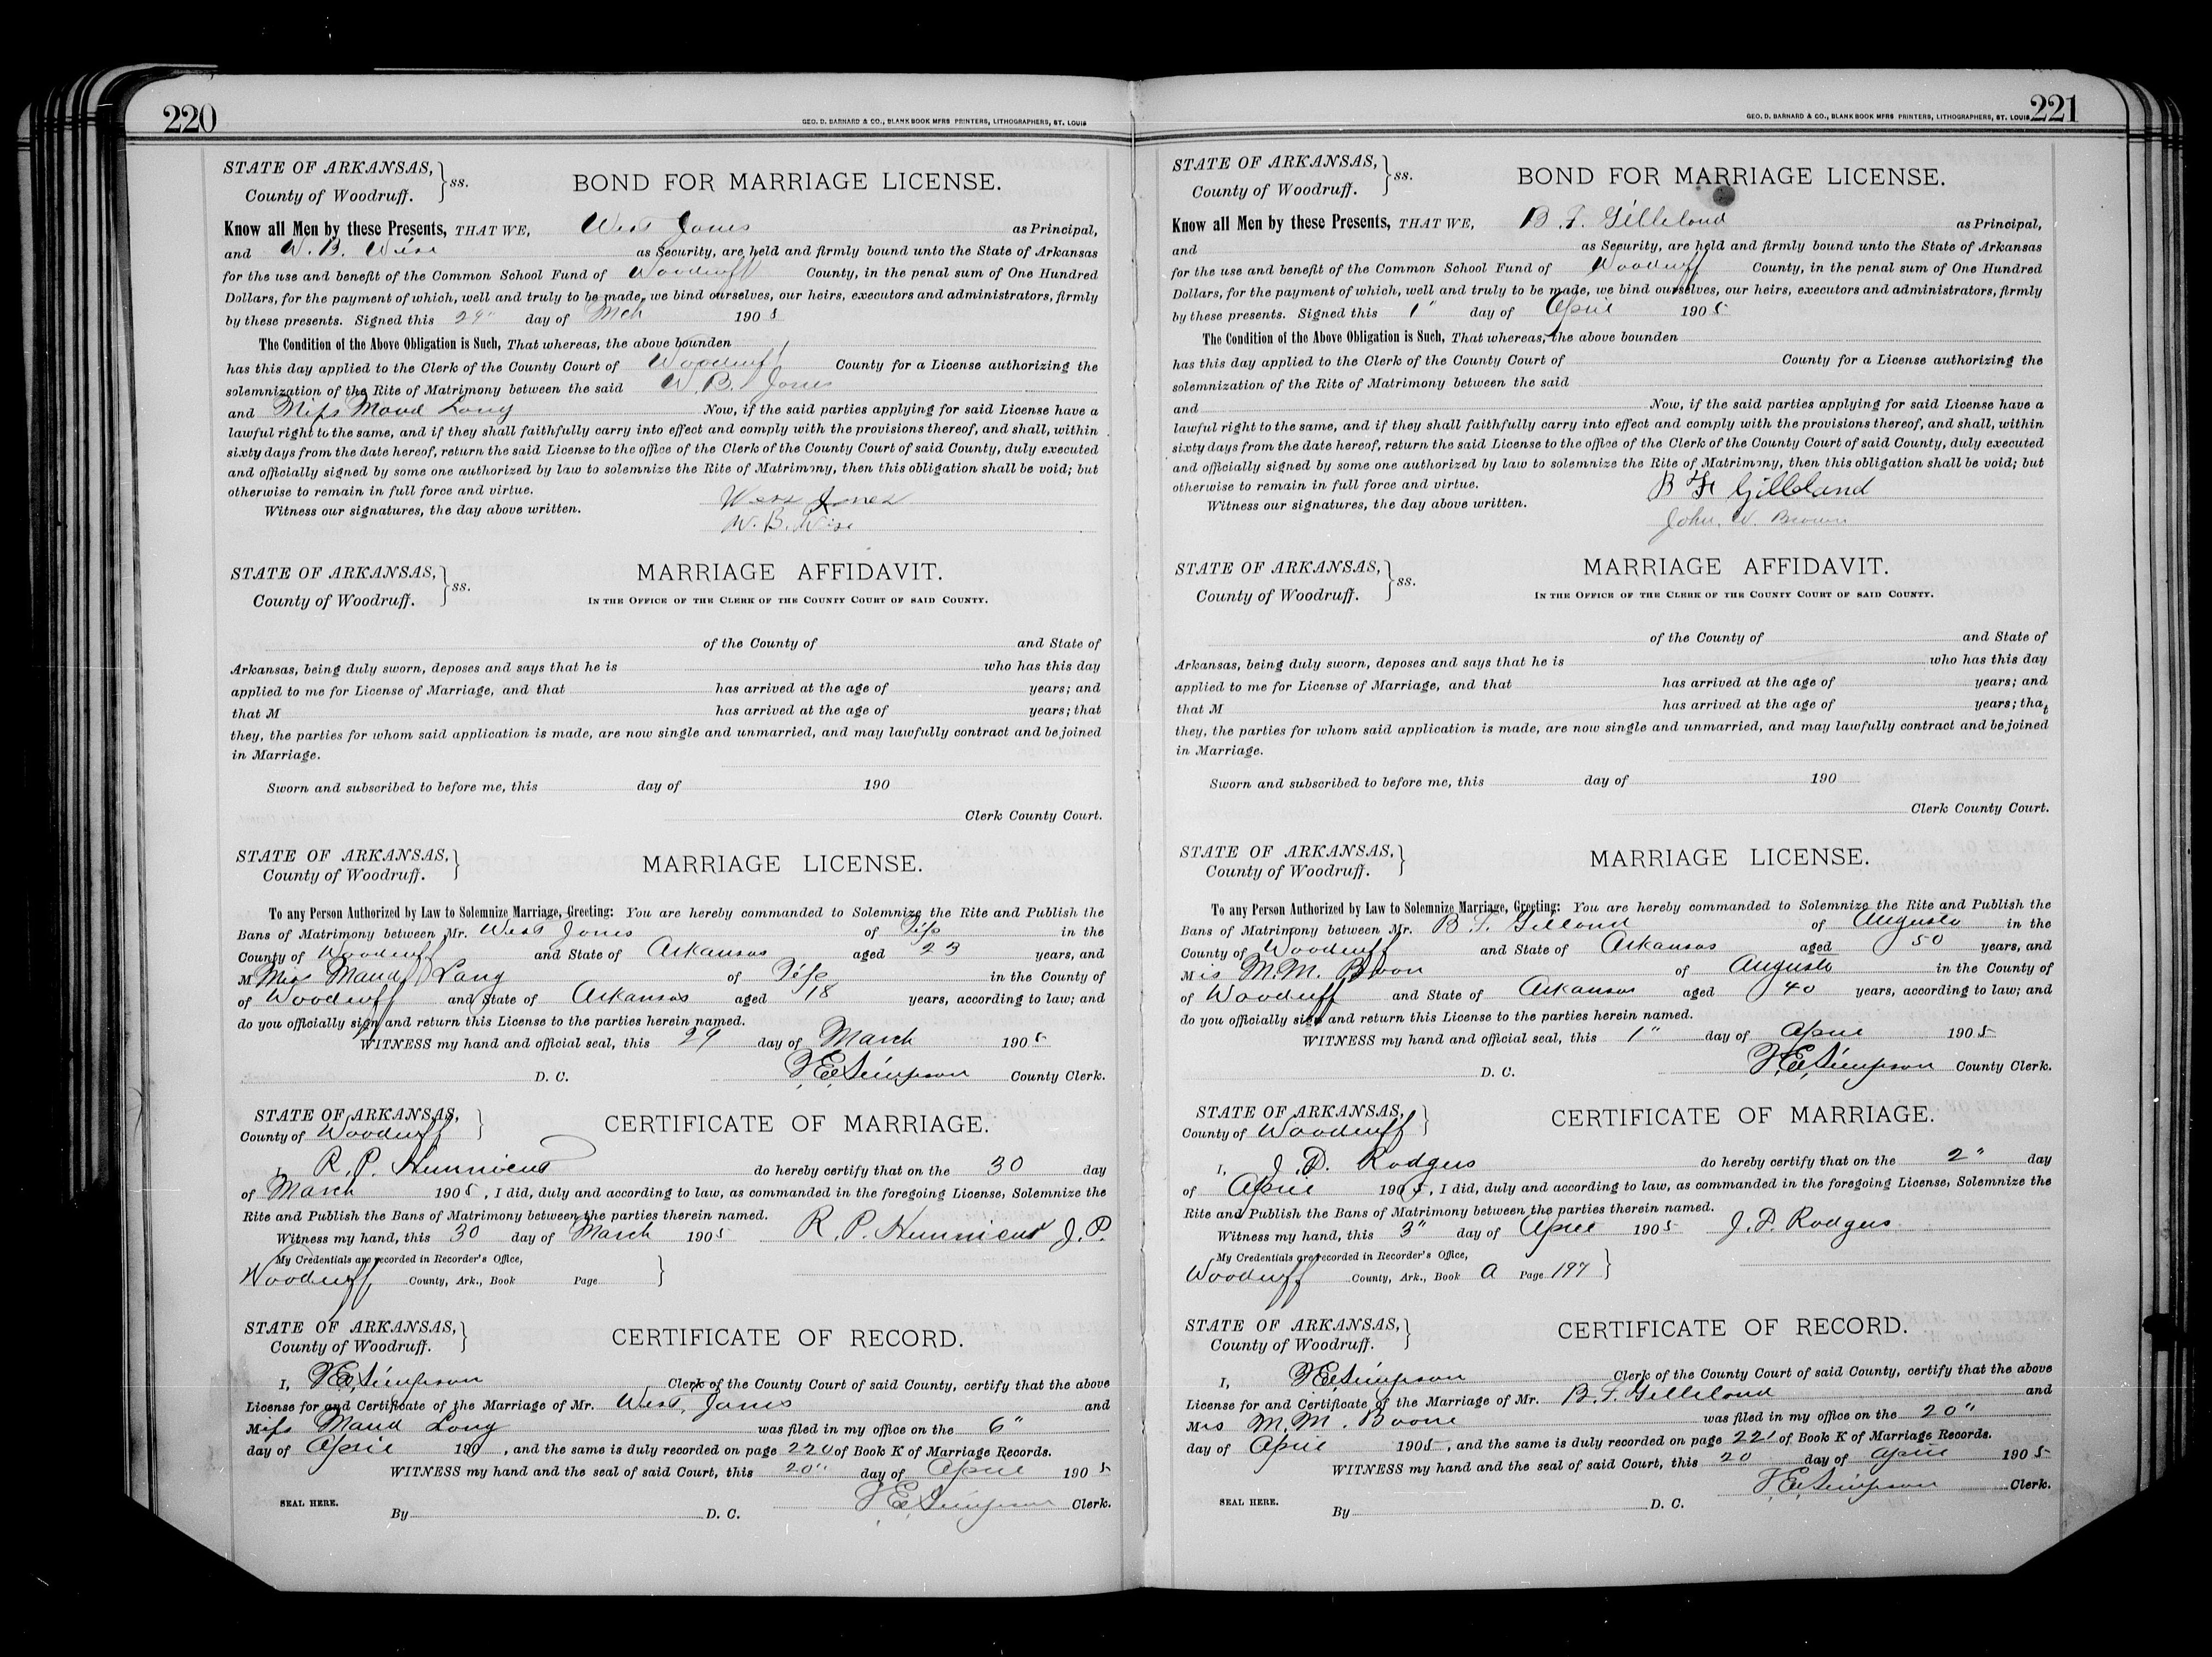 220
GEO. D. BARNARD & CO., BLANK BOOK MFRS PRINTERS, LITHOGRAPHERS, ST. LOUIS
STATE OF ARKANSAS,
County of Woodruff. } ss.
BOND FOR MARRIAGE LICENSE.
Know all Men by these Presents, THAT WE, West Jones as Principal,
and W. B. Wise as Security, are held and firmly bound unto the State of Arkansas
for the use and benefit of the Common School Fund of Woodruff County, in the penal sum of One Hundred
Dollars, for the payment of which, well and truly to be made, we bind ourselves, our heirs, executors and administrators, firmly
by these presents. Signed this 29" day of Mch 1905
The Condition of the Above Obligation is Such, That whereas, the above bounden
has this day applied to the Clerk of the County Court of Woodruff County for a License authorizing the
solemnization of the Rite of Matrimony between the said W. B. Jones
and Miss Maud Long Now, if the said parties applying for said License have a
lawful right to the same, and if they shall faithfully carry into effect and comply with the provisions thereof, and shall, within
sixty days from the date hereof, return the said License to the office of the Clerk of the County Court of said County, duly executed
and officially signed by some one authorized by law to solemnize the Rite of Matrimony, then this obligation shall be void; but
otherwise to remain in full force and virtue.
Witness our signatures, the day above written.
Jones
W. B. Wise
STATE OF ARKANSAS,
County of Woodruff. } ss.
MARRIAGE AFFIDAVIT.
IN THE OFFICE OF THE CLERK OF THE COUNTY COURT OF SAID COUNTY.
of the County of and State of
Arkansas, being duly sworn, deposes and says that he is who has this day
applied to me for License of Marriage, and that has arrived at the age of years; and
that M has arrived at the age of years; that
they, the parties for whom said application is made, are now single and unmarried, and may lawfully contract and be joined
in Marriage.
Sworn and subscribed to before me, this day of 190
Clerk County Court.
STATE OF ARKANSAS,
County of Woodruff. }
MARRIAGE LICENSE.
To any Person Authorized by Law to Solemnize Marriage, Greeting: You are hereby commanded to Solemnize the Rite and Publish the
Bans of Matrimony between Mr. West Jones of in the
County of Woodruff and State of Arkansas aged 23 years, and
M Miss Maud Long of in the County of
of Woodruff and State of Arkansas aged 18 years, according to law; and
do you officially sign and return this License to the parties herein named.
WITNESS my hand and official seal, this 29 day of March 1905
D. C. Simpson County Clerk.
STATE OF ARKANSAS,
County of Woodruff }
CERTIFICATE OF MARRIAGE.
I, R. P. Hunnicut do hereby certify that on the 30 day
of March 1905, I did, duly and according to law, as commanded in the foregoing License, Solemnize the
Rite and Publish the Bans of Matrimony between the parties therein named.
Witness my hand, this 30 day of March 1905 R. P. Hunnicut J. P.
My Credentials are recorded in Recorder's Office,
Woodruff County, Ark., Book Page }
STATE OF ARKANSAS,
County of Woodruff. }
CERTIFICATE OF RECORD.
I, Simpson Clerk of the County Court of said County, certify that the above
License for and Certificate of the Marriage of Mr. West Jones and
Miss Maud Long was filed in my office on the 6"
day of April 190 , and the same is duly recorded on page 220 of Book K of Marriage Records.
WITNESS my hand and the seal of said Court, this 20" day of April 1905
Simpson Clerk.
SEAL HERE.
By D. C.
221
GEO. D. BARNARD & CO., BLANK BOOK MFRS PRINTERS, LITHOGRAPHERS, ST. LOUIS
STATE OF ARKANSAS,
County of Woodruff. } ss.
BOND FOR MARRIAGE LICENSE.
Know all Men by these Presents, THAT WE, B. F. Gilleland as Principal,
and as Security, are held and firmly bound unto the State of Arkansas
for the use and benefit of the Common School Fund of Woodruff County, in the penal sum of One Hundred
Dollars, for the payment of which, well and truly to be made, we bind ourselves, our heirs, executors and administrators, firmly
by these presents. Signed this 1" day of April 1905
The Condition of the Above Obligation is Such, That whereas, the above bounden
has this day applied to the Clerk of the County Court of County for a License authorizing the
solemnization of the Rite of Matrimony between the said
and Now, if the said parties applying for said License have a
lawful right to the same, and if they shall faithfully carry into effect and comply with the provisions thereof, and shall, within
sixty days from the date hereof, return the said License to the office of the Clerk of the County Court of said County, duly executed
and officially signed by some one authorized by law to solemnize the Rite of Matrimony, then this obligation shall be void; but
otherwise to remain in full force and virtue.
Witness our signatures, the day above written.
B F Gilleland
John. W. Brown
STATE OF ARKANSAS,
County of Woodruff. } ss.
MARRIAGE AFFIDAVIT.
IN THE OFFICE OF THE CLERK OF THE COUNTY COURT OF SAID COUNTY.
of the County of and State of
Arkansas, being duly sworn, deposes and says that he is who has this day
applied to me for License of Marriage, and that has arrived at the age of years; and
that M has arrived at the age of years; that
they, the parties for whom said application is made, are now single and unmarried, and may lawfully contract and be joined
in Marriage.
Sworn and subscribed to before me, this day of 190
Clerk County Court.
STATE OF ARKANSAS,
County of Woodruff. }
MARRIAGE LICENSE.
To any Person Authorized by Law to Solemnize Marriage, Greeting: You are hereby commanded to Solemnize the Rite and Publish the
Bans of Matrimony between Mr. B. F. Gilland of Augusta in the
County of Woodruff and State of Arkansas aged 50 years, and
M is M. M. Boon of Augusta in the County of
of Woodruff and State of Arkansas aged 40 years, according to law; and
do you officially sign and return this License to the parties herein named.
WITNESS my hand and official seal, this 1" day of April 1905
D. C. Simpson County Clerk.
STATE OF ARKANSAS,
County of Woodruff }
CERTIFICATE OF MARRIAGE.
I, J. D. Rodgers do hereby certify that on the 2" day
of April 1905, I did, duly and according to law, as commanded in the foregoing License, Solemnize the
Rite and Publish the Bans of Matrimony between the parties therein named.
Witness my hand, this 3" day of April 1905 J. D. Rodgers
My Credentials are recorded in Recorder's Office,
Woodruff County, Ark., Book A Page 197 }
STATE OF ARKANSAS,
County of Woodruff. }
CERTIFICATE OF RECORD.
I, Simpson Clerk of the County Court of said County, certify that the above
License for and Certificate of the Marriage of Mr. B. F. Gilleland and
Mrs M. M. Boone was filed in my office on the 20"
day of April 1905, and the same is duly recorded on page 221 of Book K of Marriage Records.
WITNESS my hand and the seal of said Court, this 20 day of April 1905
Simpson Clerk.
SEAL HERE.
By D. C.